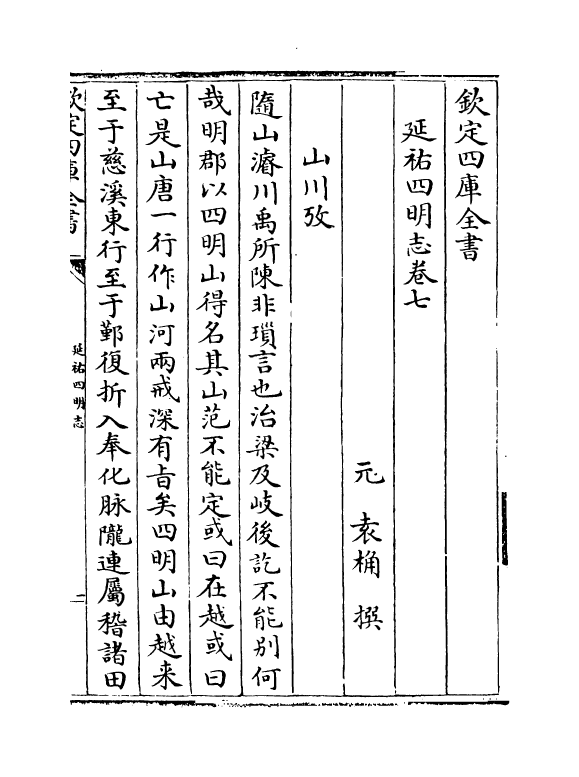 欽定四庫全書
延祐四明志卷七
元 袁桷 撰
山川攷
隨山濬川禹所陳非瑣言也治梁及岐後訖不能别何
哉明郡以四明山得名其山范不能定或曰在越或曰
亡是山唐一行作山河兩戒深有旨矣四明山由越来
至于慈溪東行至于鄞復折入奉化脉隴連屬稽諸田
欽定四庫全書
延祐四明志